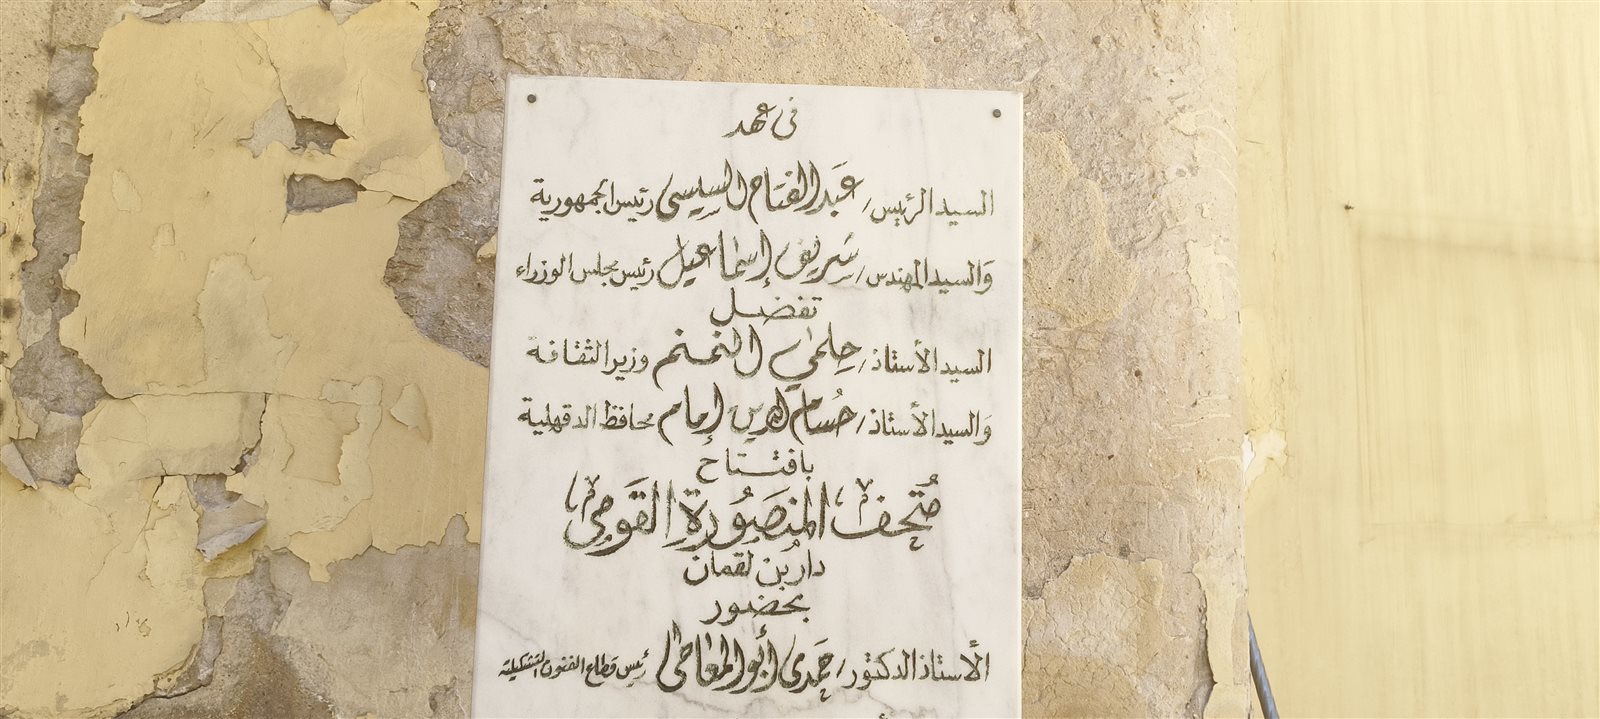 فى عهد
السيد الرئيس / عَبد الفتاح السيسى رئيس الجمهورية
وَالسيد المهندس / شريف إسماعيل رئيس مجلس الوزراء
تفضل
السيد الأستاذ / حِلمى النمنم وزير الثقافة
وَالسيد الأستاذ / حُسام الدين إمام محافظ الدقهلية
بافتتاح
مُتحف المنصُورة القَومِى
دار بن لقمان
بحضور
الأستاذ الدكتور / حَمدى أبو المعاطى رئيس قطاع الفنون التشكيلية